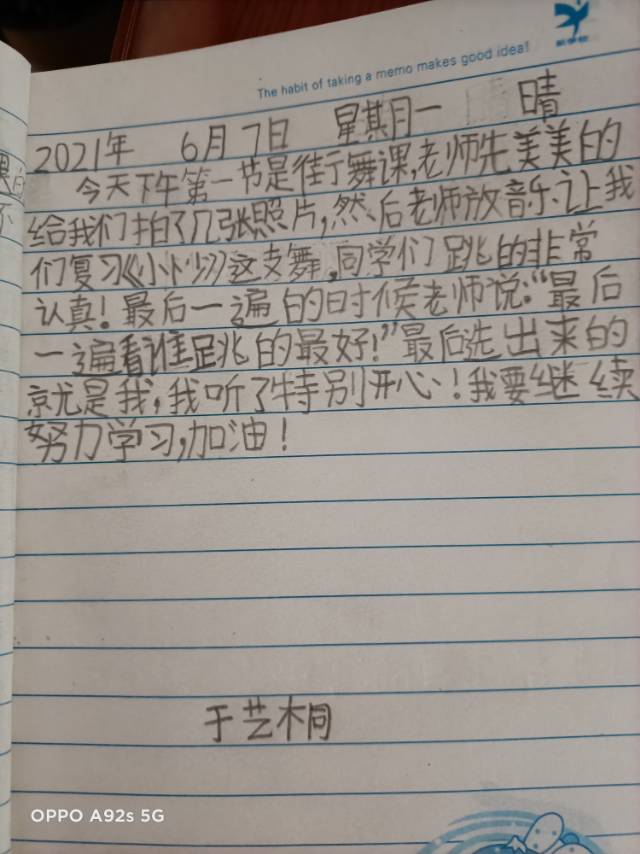 The habit of taking a memo makes good idea!
2021年 6月7日 星期一 晴
今天下午第一节是街舞课,老师先美美的
给我们拍了几张照片,然后老师放音乐让我
们复习《小小少》这支舞,同学们跳的非常
认真!最后一遍的时候老师说:“最后
一遍看谁跳的最好!”最后选出来的
就是我,我听了特别开心!我要继续
努力学习,加油!
于艺桐
OPPO A92s 5G